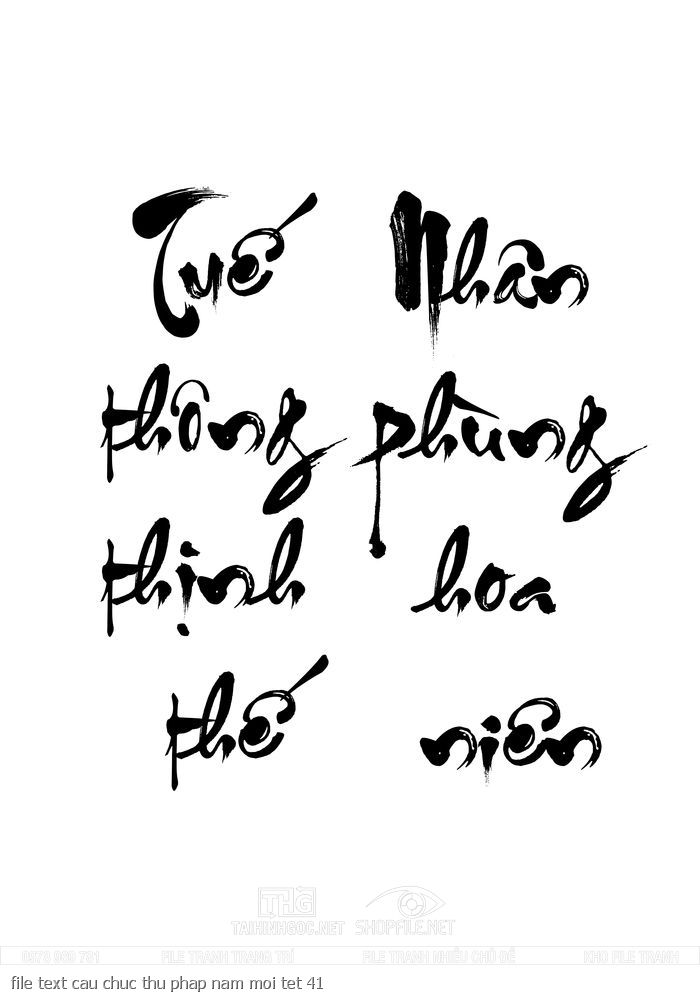 Tuế Nhân
thông phùng
thịnh hoa
thế niên
THG
TAIHINHGOC.NET SHOPFILE.NET
FILE TRANH TRANG TRÍ FILE TRANH NHIỀU CHỦ ĐỀ KHO FILE TRANH
file text cau chuc thu phap nam moi tet 41